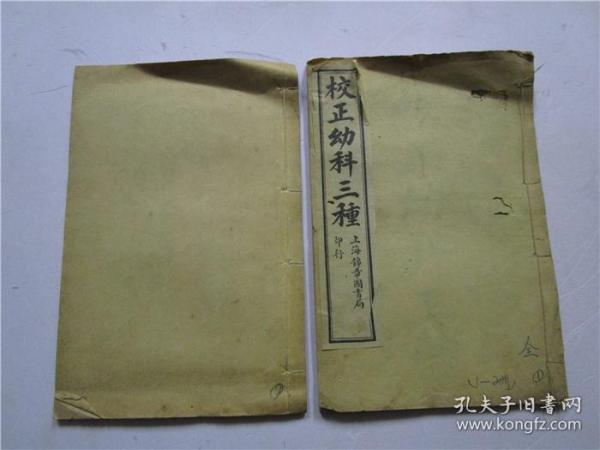 校正幼科三種
上海錦章圖書局
印行
全
(1-2冊)
①
②
孔夫子旧书网
www.kongfz.com